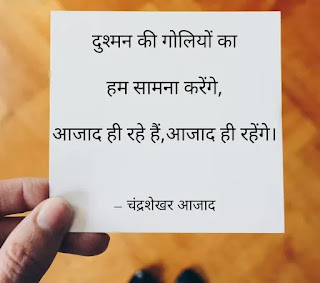 दुश्मन की गोलियों का
हम सामना करेंगे,
आजाद ही रहे हैं,आजाद ही रहेंगे।
– चंद्रशेखर आजाद